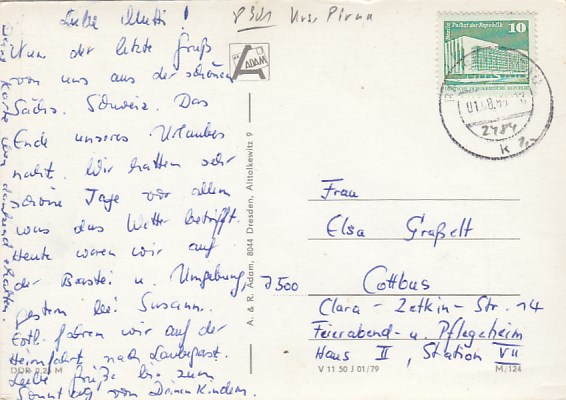 Liebe Mutti!
Nun der letzte Gruß
von uns aus der schönen
Sächs. Schweiz. Das
Ende unseres Urlaubes
naht. Wir hatten sehr
schöne Tage vor allem
was das Wetter betrifft.
Heute waren wir auf
der Bastei u. Umgebung,
gestern bei Susann.
Evtl. fahren wir auf der
Heimfahrt nach
Liebe Grüße bis zum
Sonntag von Deinen Kindern.
Karte dankend erhalten.
Krs. Pirna
ADAM
Palast der Republik
10
DEUTSCHE DEMOKRATISCHE REPUBLIK
A. & R. Adam, 8044 Dresden, Alttolkewitz 9
Frau
Elsa Graßelt
7500 Cottbus
Clara-Zetkin-Str. 14
Feierabend- u. Pflegeheim
Haus II, Station VII
DDR 0,25 M
V 11 50 J 01/79
M/124